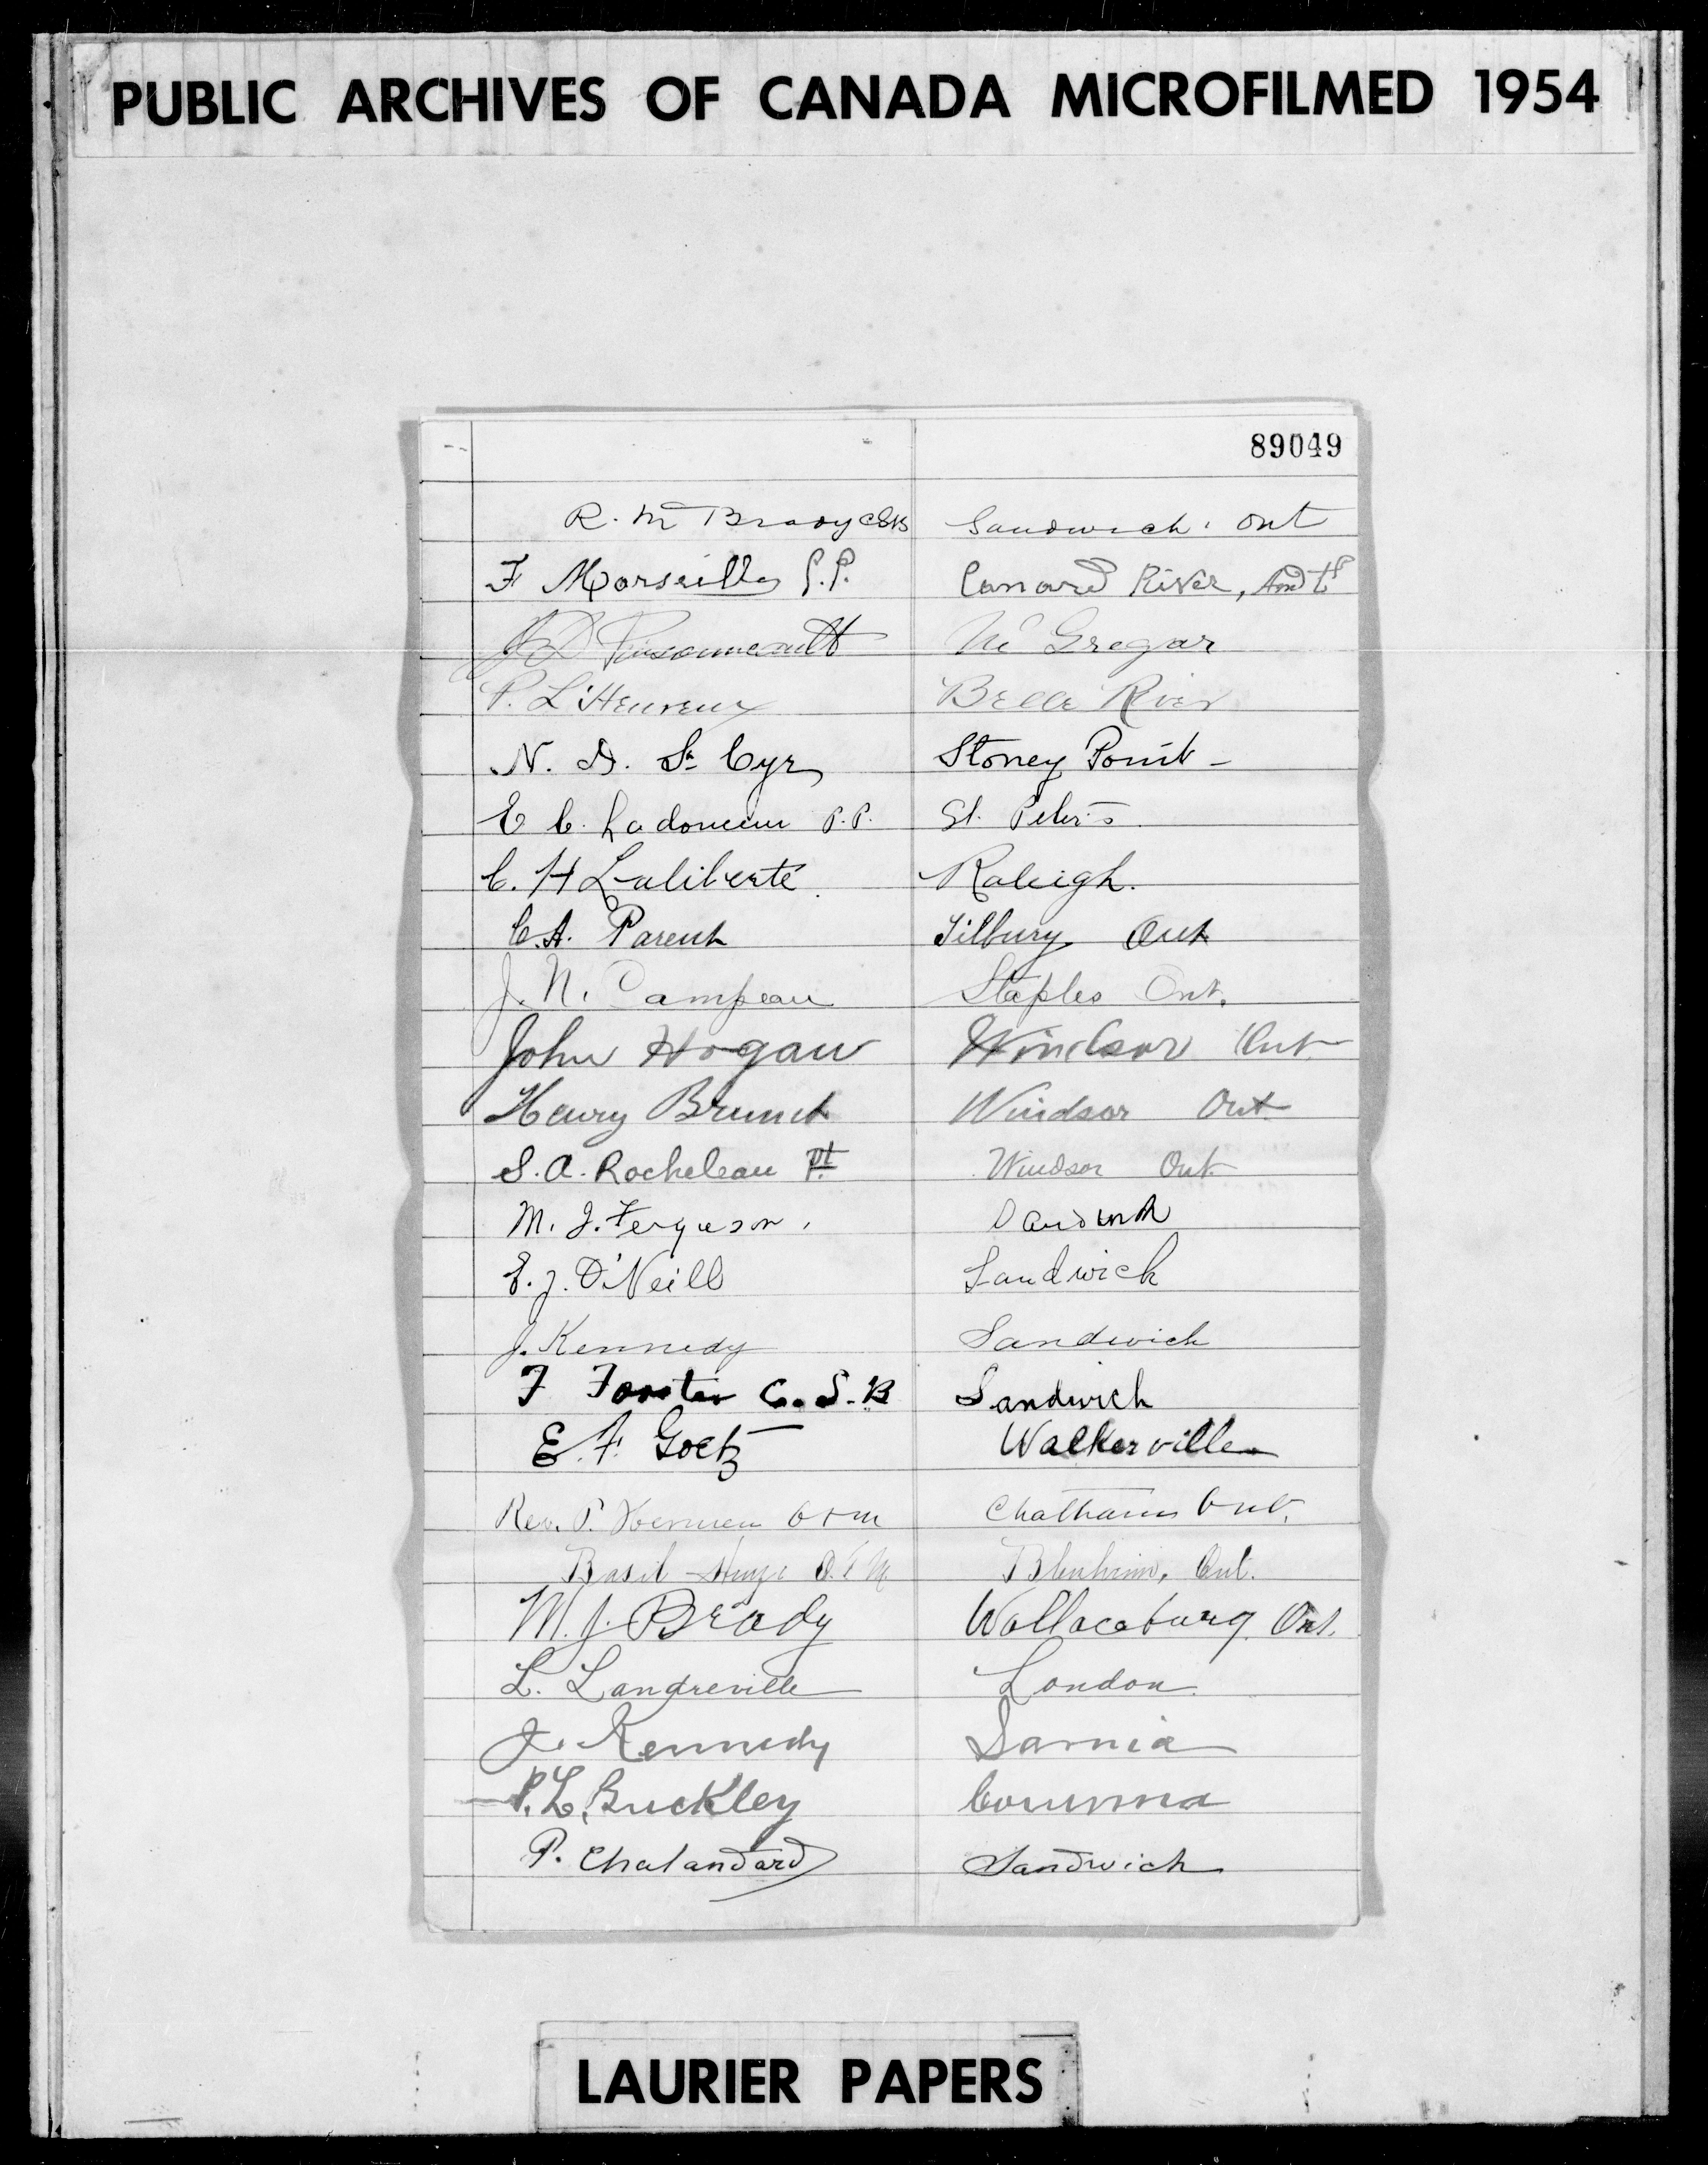 PUBLIC ARCHIVES OF CANADA MICROFILMED 1954
89049
R. M Brady CSB Sandwich. Ont
F Marseille P.P. Canard River,
J D Pinsonneault Mc Gregor
P. L'Heureux Belle River
N. D. St Cyr Stoney Point -
E C. Ladouceur P.P. St. Peter's
C. H Laliberté Raleigh.
C.A. Parent Tilbury Ont
J. N. Campeau Staples Ont.
John Hogan Windsor Ont
Henry Brunet Windsor Ont
S. A. Rocheleau Pt Windsor Ont
M. J. Ferguson. Sandwich
E. J. O'Neill Sandwich
J. Kennedy Sandwich
F Forster C.S.B Sandwich
E. F. Goetz Walkerville
Rev. P. OFM Chatham Ont.
Basil O.F.M Blenheim, Ont.
M. J. Brady Wallaceburg Ont.
L. Landreville London
J. Kennedy Sarnia
P. L. Buckley Corunna
P. Chalandard Sandwich
LAURIER PAPERS